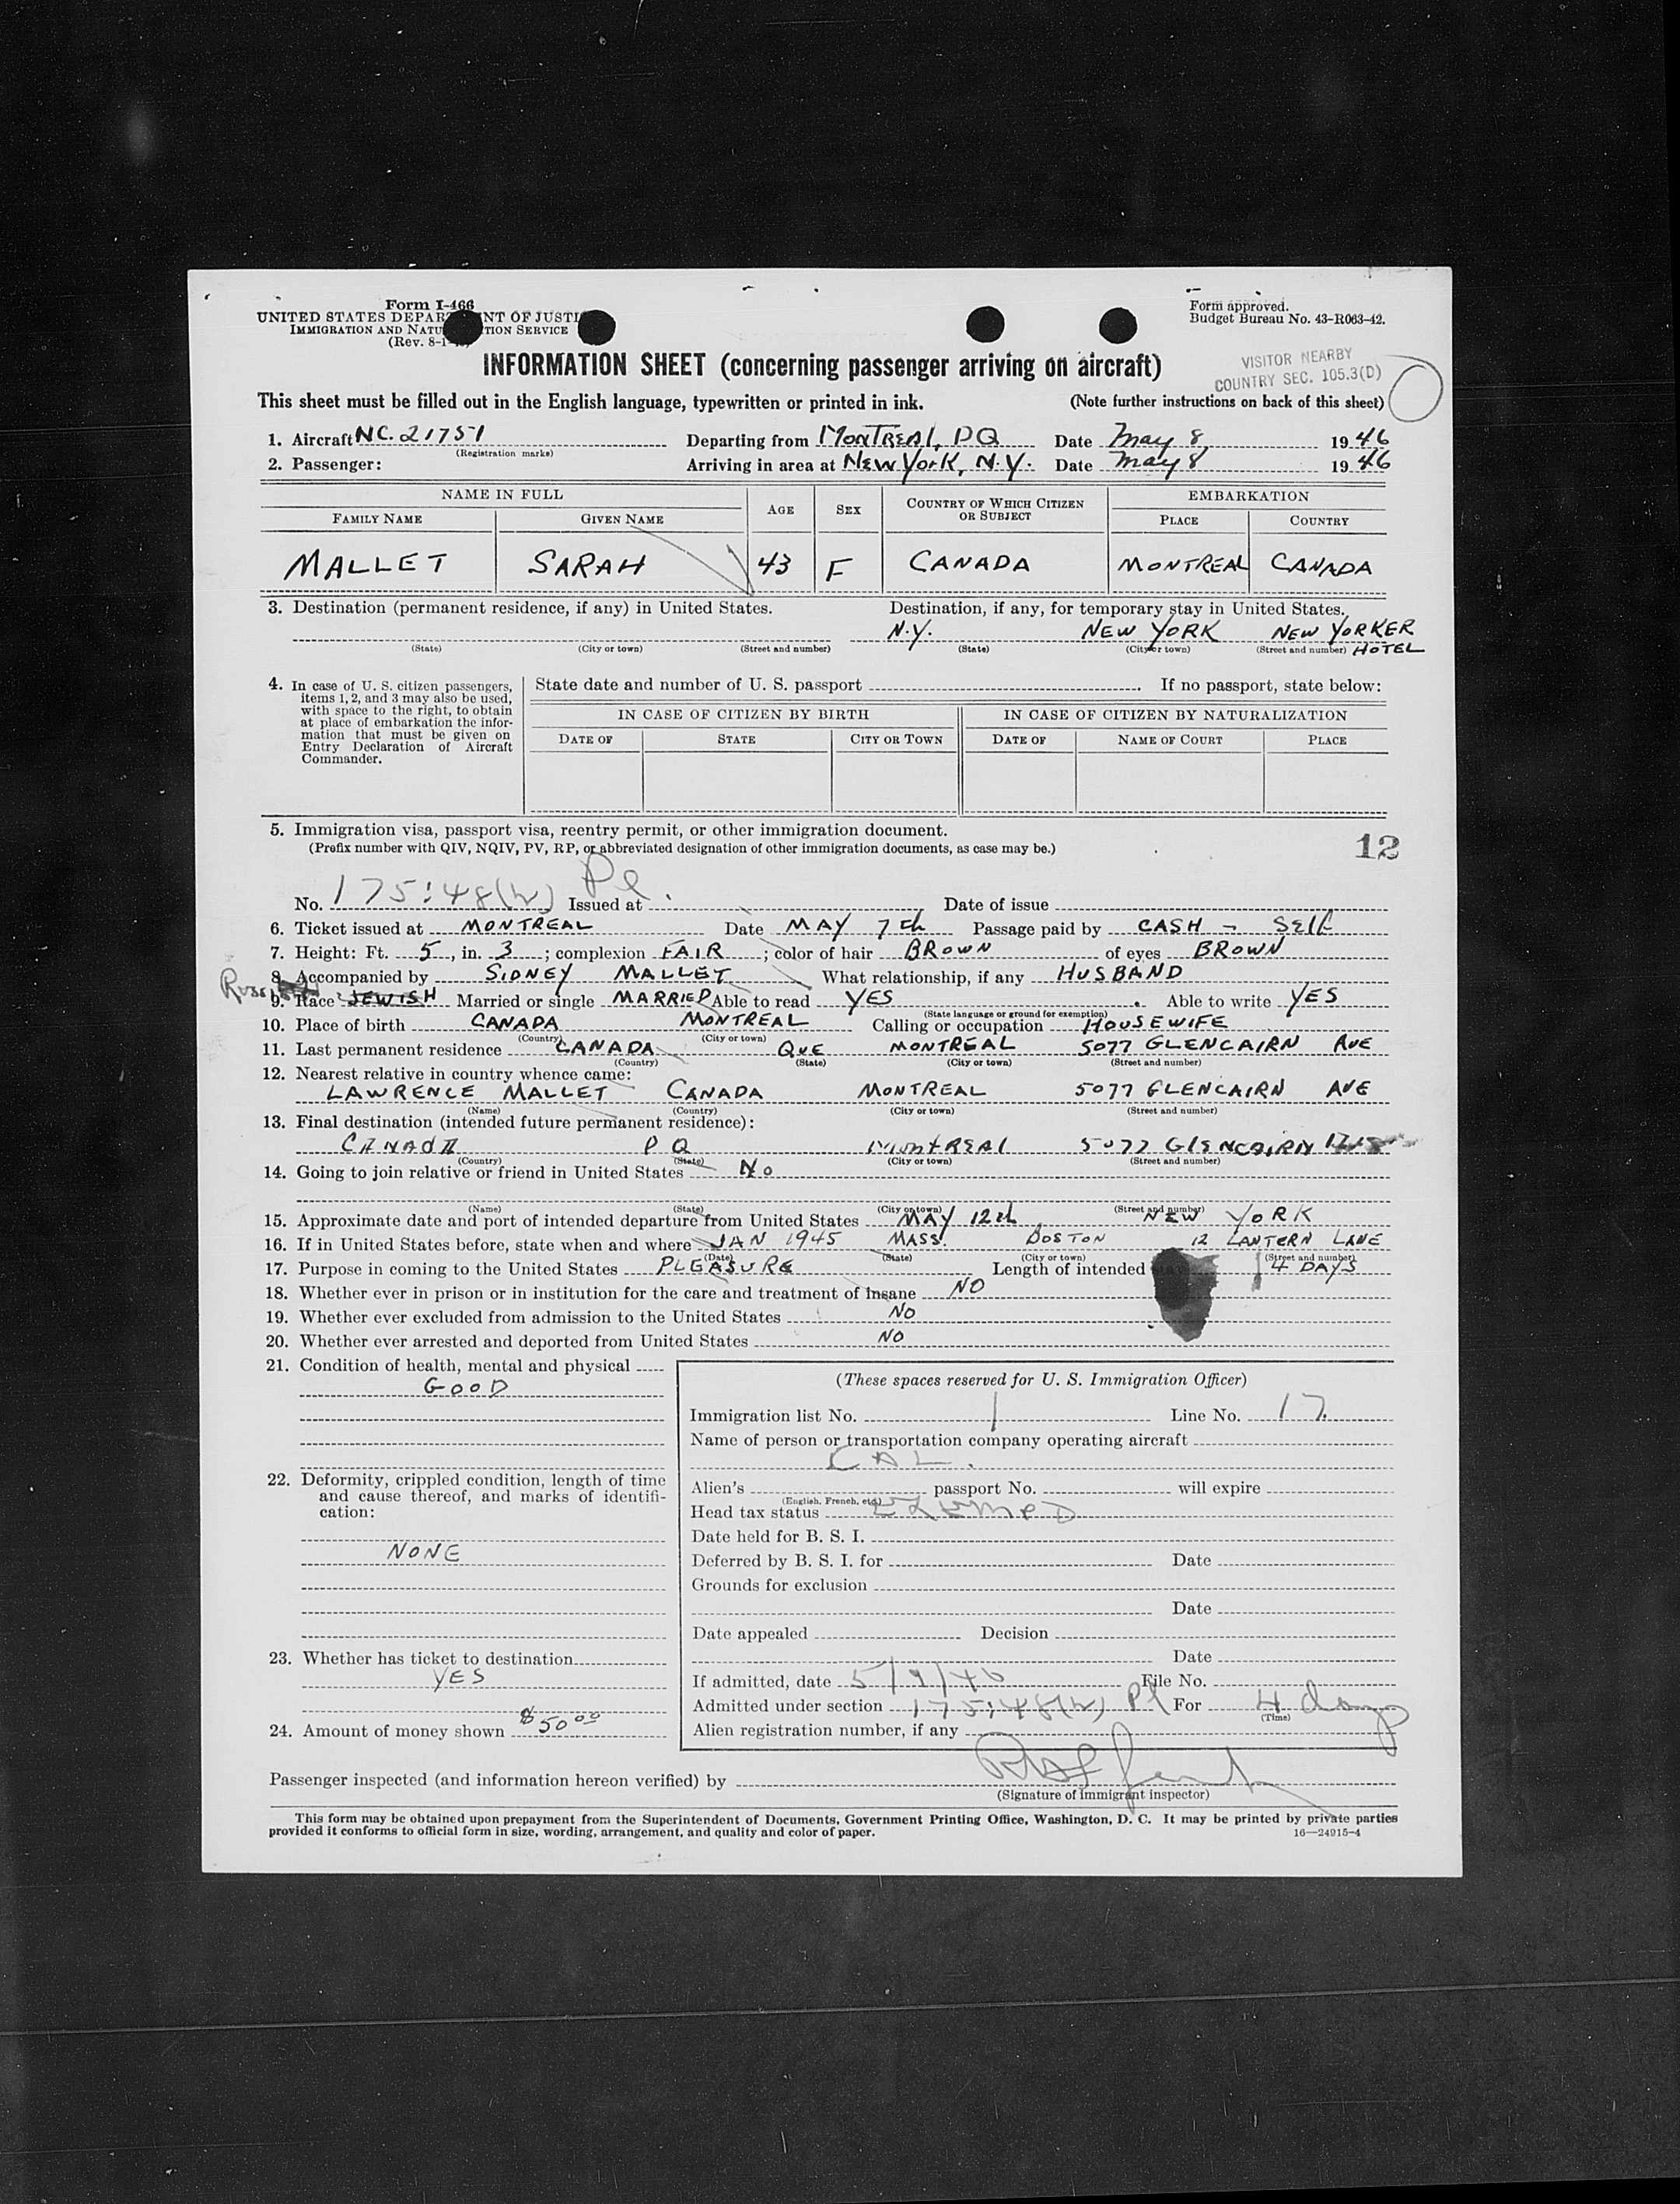 Form I-466
UNITED STATES DEPAR NT OF JUSTI
IMMIGRATION AND NATU TION SERVICE
(Rev. 8-1-
Form approved.
Budget Bureau No. 43-R063-42.
INFORMATION SHEET (concerning passenger arriving on aircraft)
VISITOR NEARBY
COUNTRY SEC. 105.3(D)
This sheet must be filled out in the English language, typewritten or printed in ink. (Note further instructions on back of this sheet)
1. Aircraft NC. 21751 Departing from MONTREAL, PQ Date May 8 1946
(Registration marks)
2. Passenger: Arriving in area at NEW YORK, N.Y. Date May 8 1946
NAME IN FULL AGE SEX COUNTRY OF WHICH CITIZEN OR SUBJECT EMBARKATION
FAMILY NAME GIVEN NAME PLACE COUNTRY
MALLET SARAH 43 F CANADA MONTREAL CANADA
3. Destination (permanent residence, if any) in United States. Destination, if any, for temporary stay in United States.
N.Y. NEW YORK NEW YORKER HOTEL
(State) (City or town) (Street and number) (State) (City or town) (Street and number)
4. In case of U. S. citizen passengers, items 1, 2, and 3 may also be used, with space to the right, to obtain at place of embarkation the information that must be given on Entry Declaration of Aircraft Commander.
State date and number of U. S. passport If no passport, state below:
IN CASE OF CITIZEN BY BIRTH IN CASE OF CITIZEN BY NATURALIZATION
DATE OF STATE CITY OR TOWN DATE OF NAME OF COURT PLACE
5. Immigration visa, passport visa, reentry permit, or other immigration document.
(Prefix number with QIV, NQIV, PV, RP, or abbreviated designation of other immigration documents, as case may be.)
12
No. 175:48(W) Pl. Issued at Date of issue
6. Ticket issued at MONTREAL Date MAY 7th Passage paid by CASH - SELF
7. Height: Ft. 5, in. 3; complexion FAIR; color of hair BROWN of eyes BROWN
8. Accompanied by SIDNEY MALLET What relationship, if any HUSBAND
9. Race JEWISH Married or single MARRIED Able to read YES Able to write YES
(State language or ground for exemption)
10. Place of birth CANADA MONTREAL Calling or occupation HOUSEWIFE
(Country) (City or town)
11. Last permanent residence CANADA QUE MONTREAL 5077 GLENCAIRN AVE
(Country) (State) (City or town) (Street and number)
12. Nearest relative in country whence came:
LAWRENCE MALLET CANADA MONTREAL 5077 GLENCAIRN AVE
(Name) (Country) (City or town) (Street and number)
13. Final destination (intended future permanent residence):
CANADA P Q MONTREAL 5077 GLENCAIRN
(Country) (State) (City or town) (Street and number)
14. Going to join relative or friend in United States No
(Name) (State) (City or town) (Street and number)
15. Approximate date and port of intended departure from United States MAY 12th NEW YORK
16. If in United States before, state when and where JAN 1945 MASS. BOSTON 12 LANTERN LANE
(Date) (State) (City or town) (Street and number)
17. Purpose in coming to the United States PLEASURE Length of intended 4 DAYS
18. Whether ever in prison or in institution for the care and treatment of insane NO
19. Whether ever excluded from admission to the United States NO
20. Whether ever arrested and deported from United States NO
21. Condition of health, mental and physical
GOOD
22. Deformity, crippled condition, length of time and cause thereof, and marks of identification:
NONE
23. Whether has ticket to destination
YES
24. Amount of money shown $50 00
(These spaces reserved for U. S. Immigration Officer)
Immigration list No. 1 Line No. 17
Name of person or transportation company operating aircraft
CAL.
Alien's passport No. will expire
(English, French, etc.)
Head tax status
Date held for B. S. I.
Deferred by B. S. I. for Date
Grounds for exclusion
Date
Date appealed Decision
Date
If admitted, date 5/9/46 File No.
Admitted under section 175:48(W) Pl For 4 days
(Time)
Alien registration number, if any
Passenger inspected (and information hereon verified) by
(Signature of immigrant inspector)
This form may be obtained upon prepayment from the Superintendent of Documents, Government Printing Office, Washington, D. C. It may be printed by private parties
provided it conforms to official form in size, wording, arrangement, and quality and color of paper.
16—24915-4